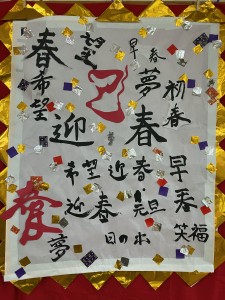 春
希望
望
早春
夢
初春
巳
迎春
希望
迎春
早春
迎春
元旦
日の出
笑福
夢
春